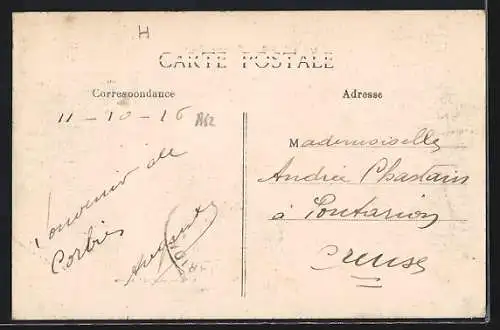 H
CARTE POSTALE
Correspondance
11-10-16
Souvenir de
Corbie
Adresse
Mademoiselle
Andrée Chastain
à Pontarion
Creuse